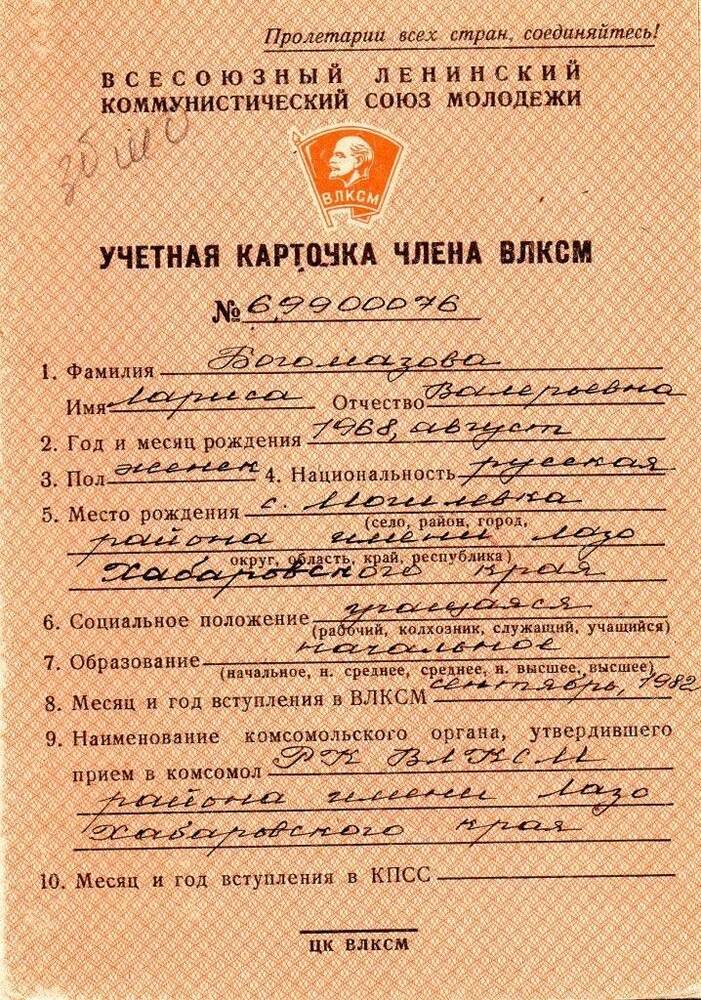 Пролетарии всех стран, соединяйтесь!
ВСЕСОЮЗНЫЙ ЛЕНИНСКИЙ
КОММУНИСТИЧЕСКИЙ СОЮЗ МОЛОДЕЖИ
ВЛКСМ
УЧЕТНАЯ КАРТОЧКА ЧЛЕНА ВЛКСМ
№ 69900076
1. Фамилия Богомазова
Имя Лариса Отчество Валерьевна
2. Год и месяц рождения 1968, август
3. Пол женск 4. Национальность русская
5. Место рождения с. Могилевка
(село, район, город,
района имени Лазо
округ, область, край, республика)
Хабаровского края
6. Социальное положение учащаяся
(рабочий, колхозник, служащий, учащийся)
7. Образование начальное
(начальное, н. среднее, среднее, н. высшее, высшее)
8. Месяц и год вступления в ВЛКСМ сентябрь, 1982
9. Наименование комсомольского органа, утвердившего
прием в комсомол РК ВЛКСМ
района имени Лазо
Хабаровского края
10. Месяц и год вступления в КПСС
ЦК ВЛКСМ